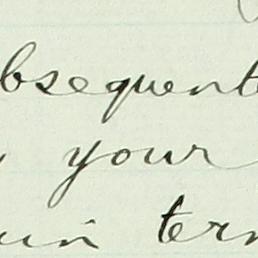 bsequent
your
in ter